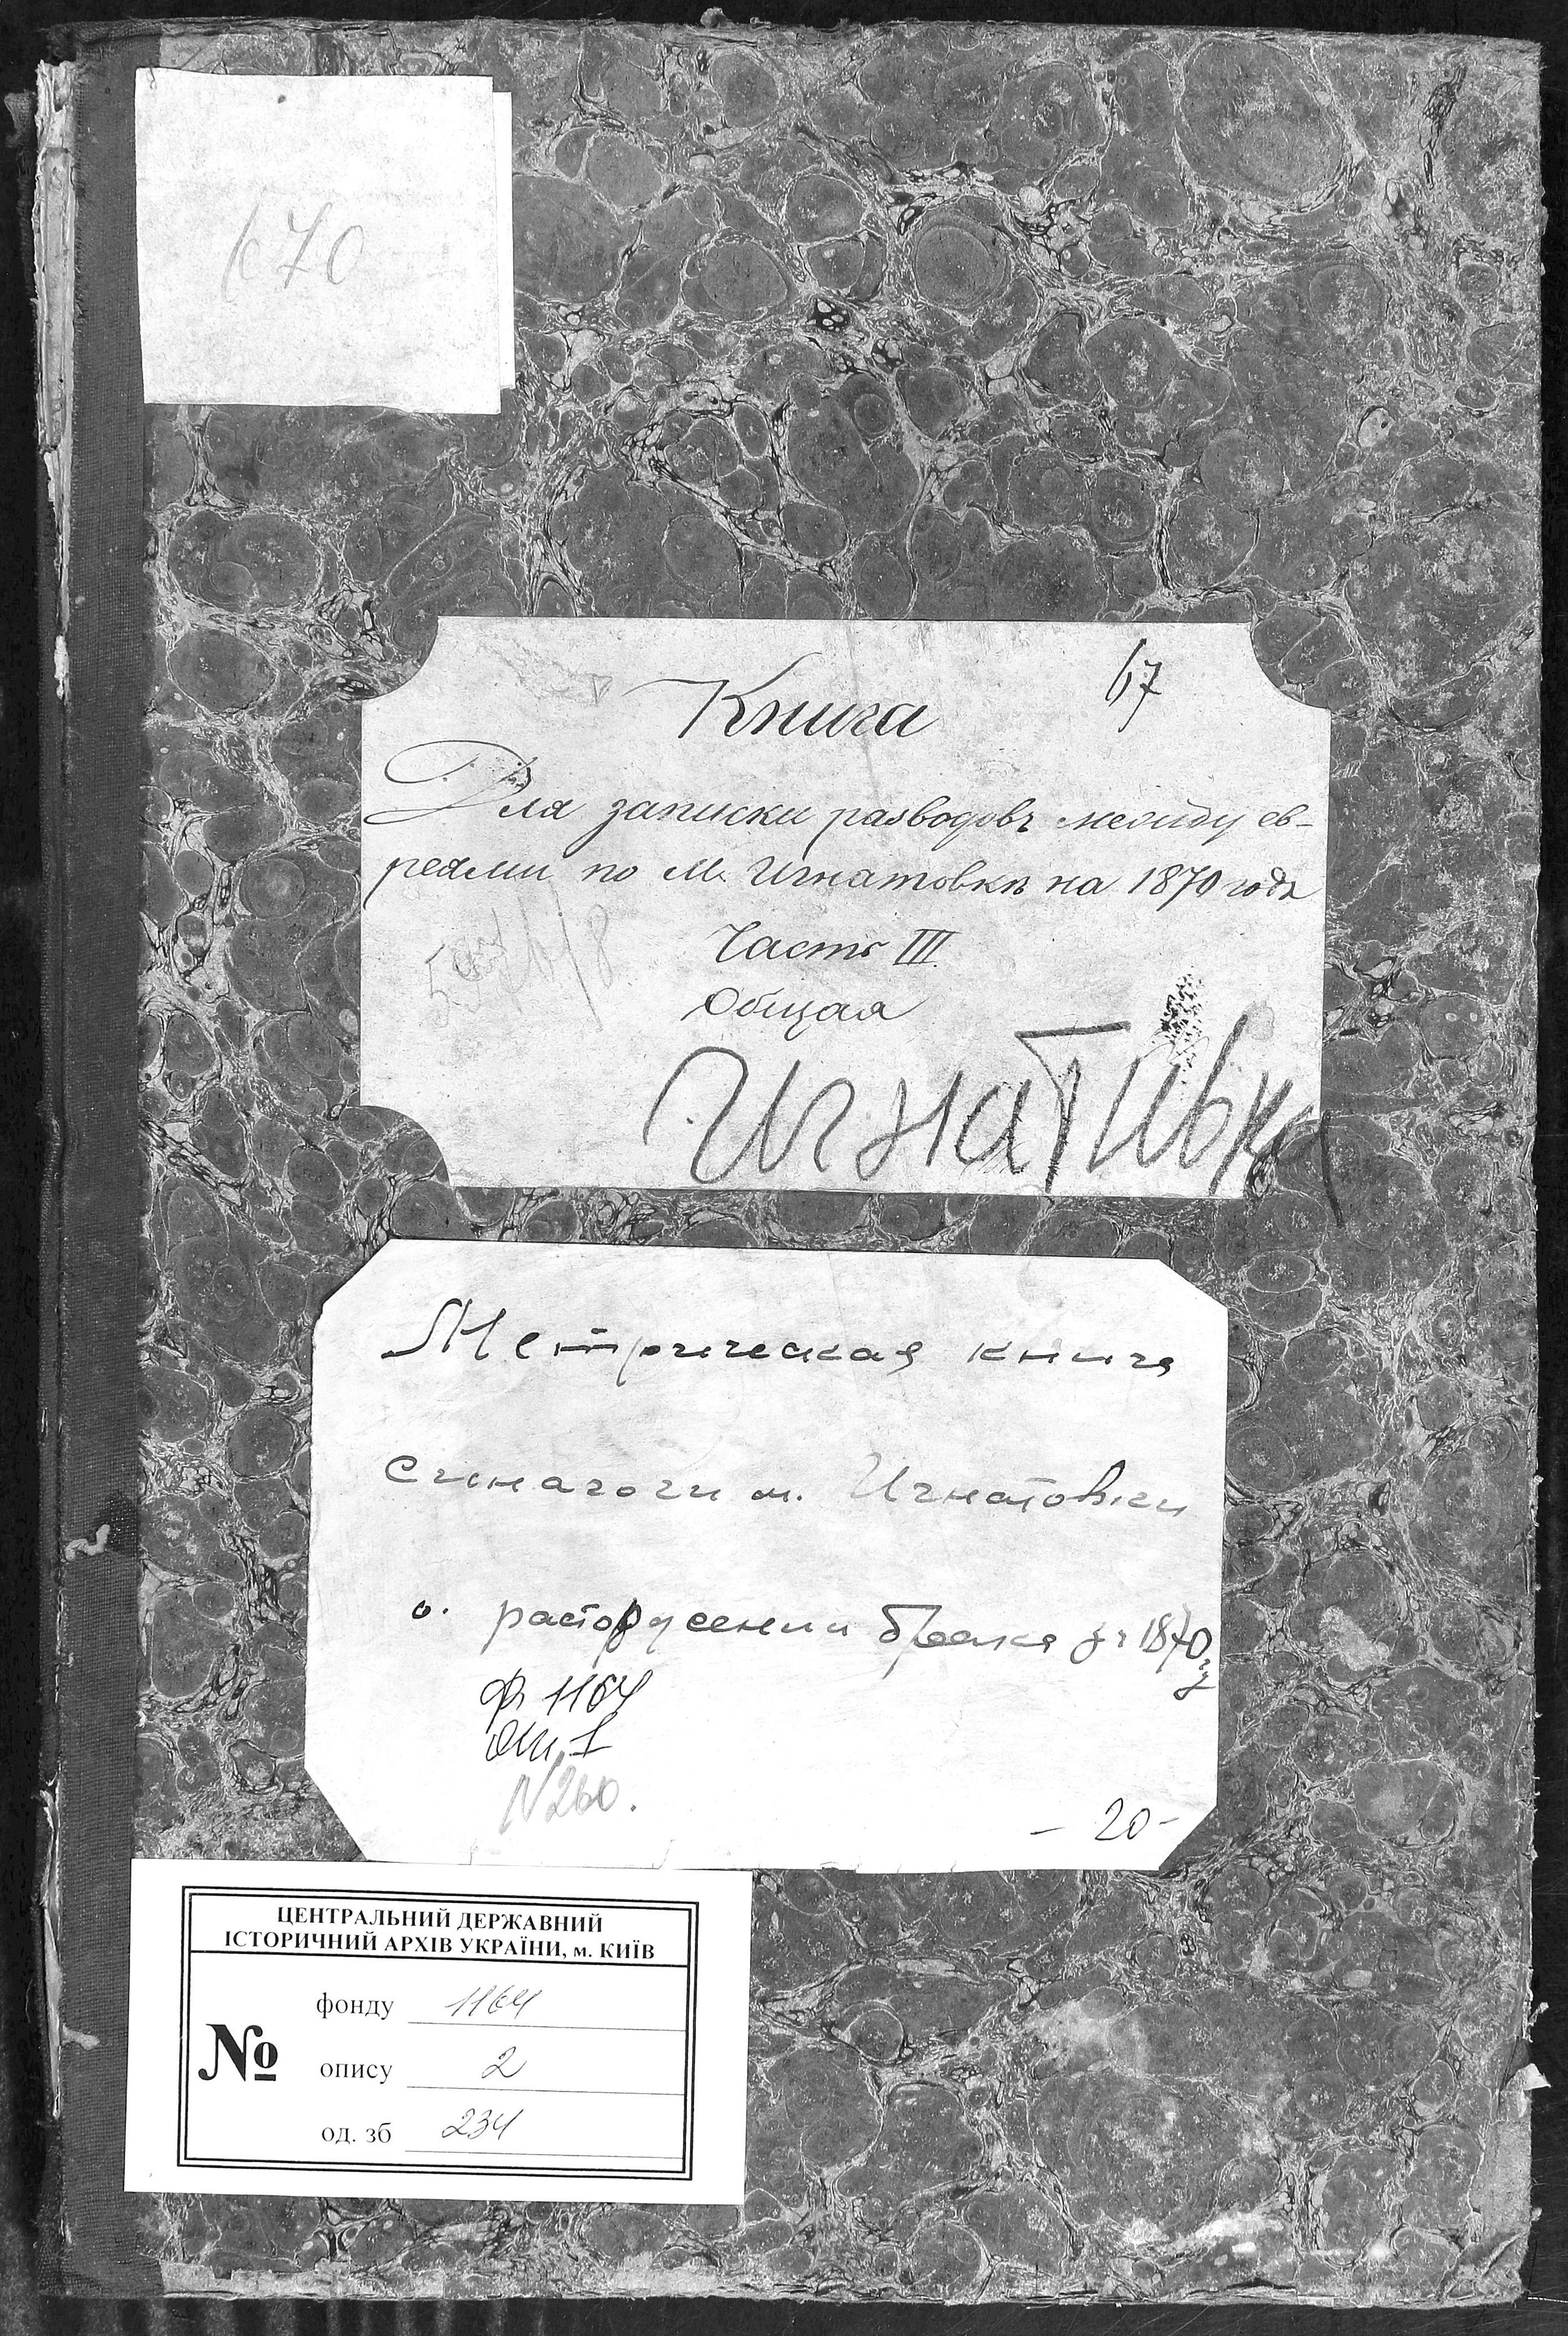 70
67
Книга
Для записки разводовъ между ев-
реями по М. Игнатовкѣ на 1870 годъ
Часть III.
Общая
Игнативка
Метрическая книга
синагоги м. Игнатовки
о расторжении брака за 1870 г
ф. 1164
оп. 1
N 260.
- 20 -
ЦЕНТРАЛЬНИЙ ДЕРЖАВНИЙ
ІСТОРИЧНИЙ АРХІВ УКРАЇНИ, м. КИЇВ
фонду 1164
№
опису 2
од. зб 234